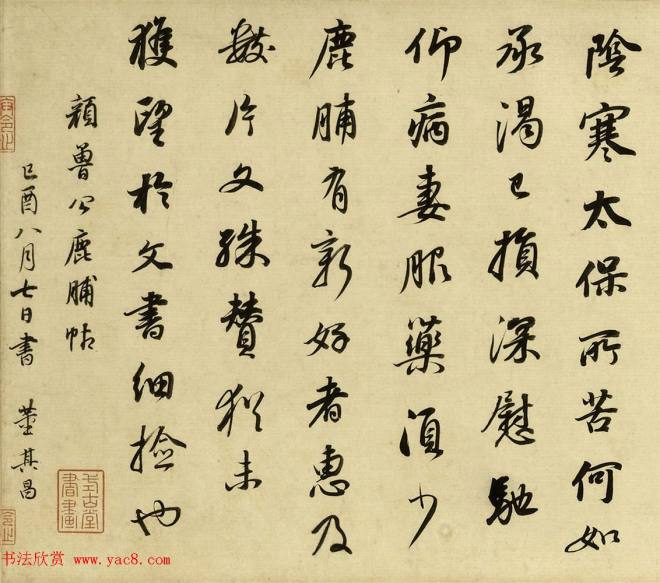 陰寒太保所苦何如
承渴已損深慰馳
仰病妻服藥須少
鹿脯有新好者惠及
數片文殊贊猶未
獲望於文書細撿也
顏魯公鹿脯帖
己酉八月七日書 董其昌
书法欣赏 www.yac8.com